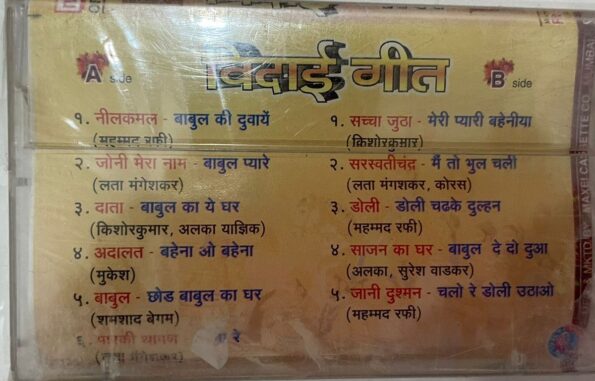 विदाई गीत
A side
१. नीलकमल - बाबुल की दुवायें
(महम्मद रफी)
२. जोनी मेरा नाम - बाबुल प्यारे
(लता मंगेशकर)
३. दाता - बाबुल का ये घर
(किशोरकुमार, अलका याज्ञिक)
४. अदालत - बहेना ओ बहेना
(मुकेश)
५. बाबुल - छोड बाबुल का घर
(शमशाद बेगम)
६.
रे
B side
१. सच्चा जुठा - मेरी प्यारी बहेनीया
(किशोरकुमार)
२. सरस्वतीचंद्र - मैं तो भुल चली
(लता मंगशकर, कोरस)
३. डोली - डोली चढके दुल्हन
(महम्मद रफी)
४. साजन का घर - बाबुल दे दो दुआ
(अलका, सुरेश वाडकर)
५. जानी दुश्मन - चलो रे डोली उठाओ
(महम्मद रफी)